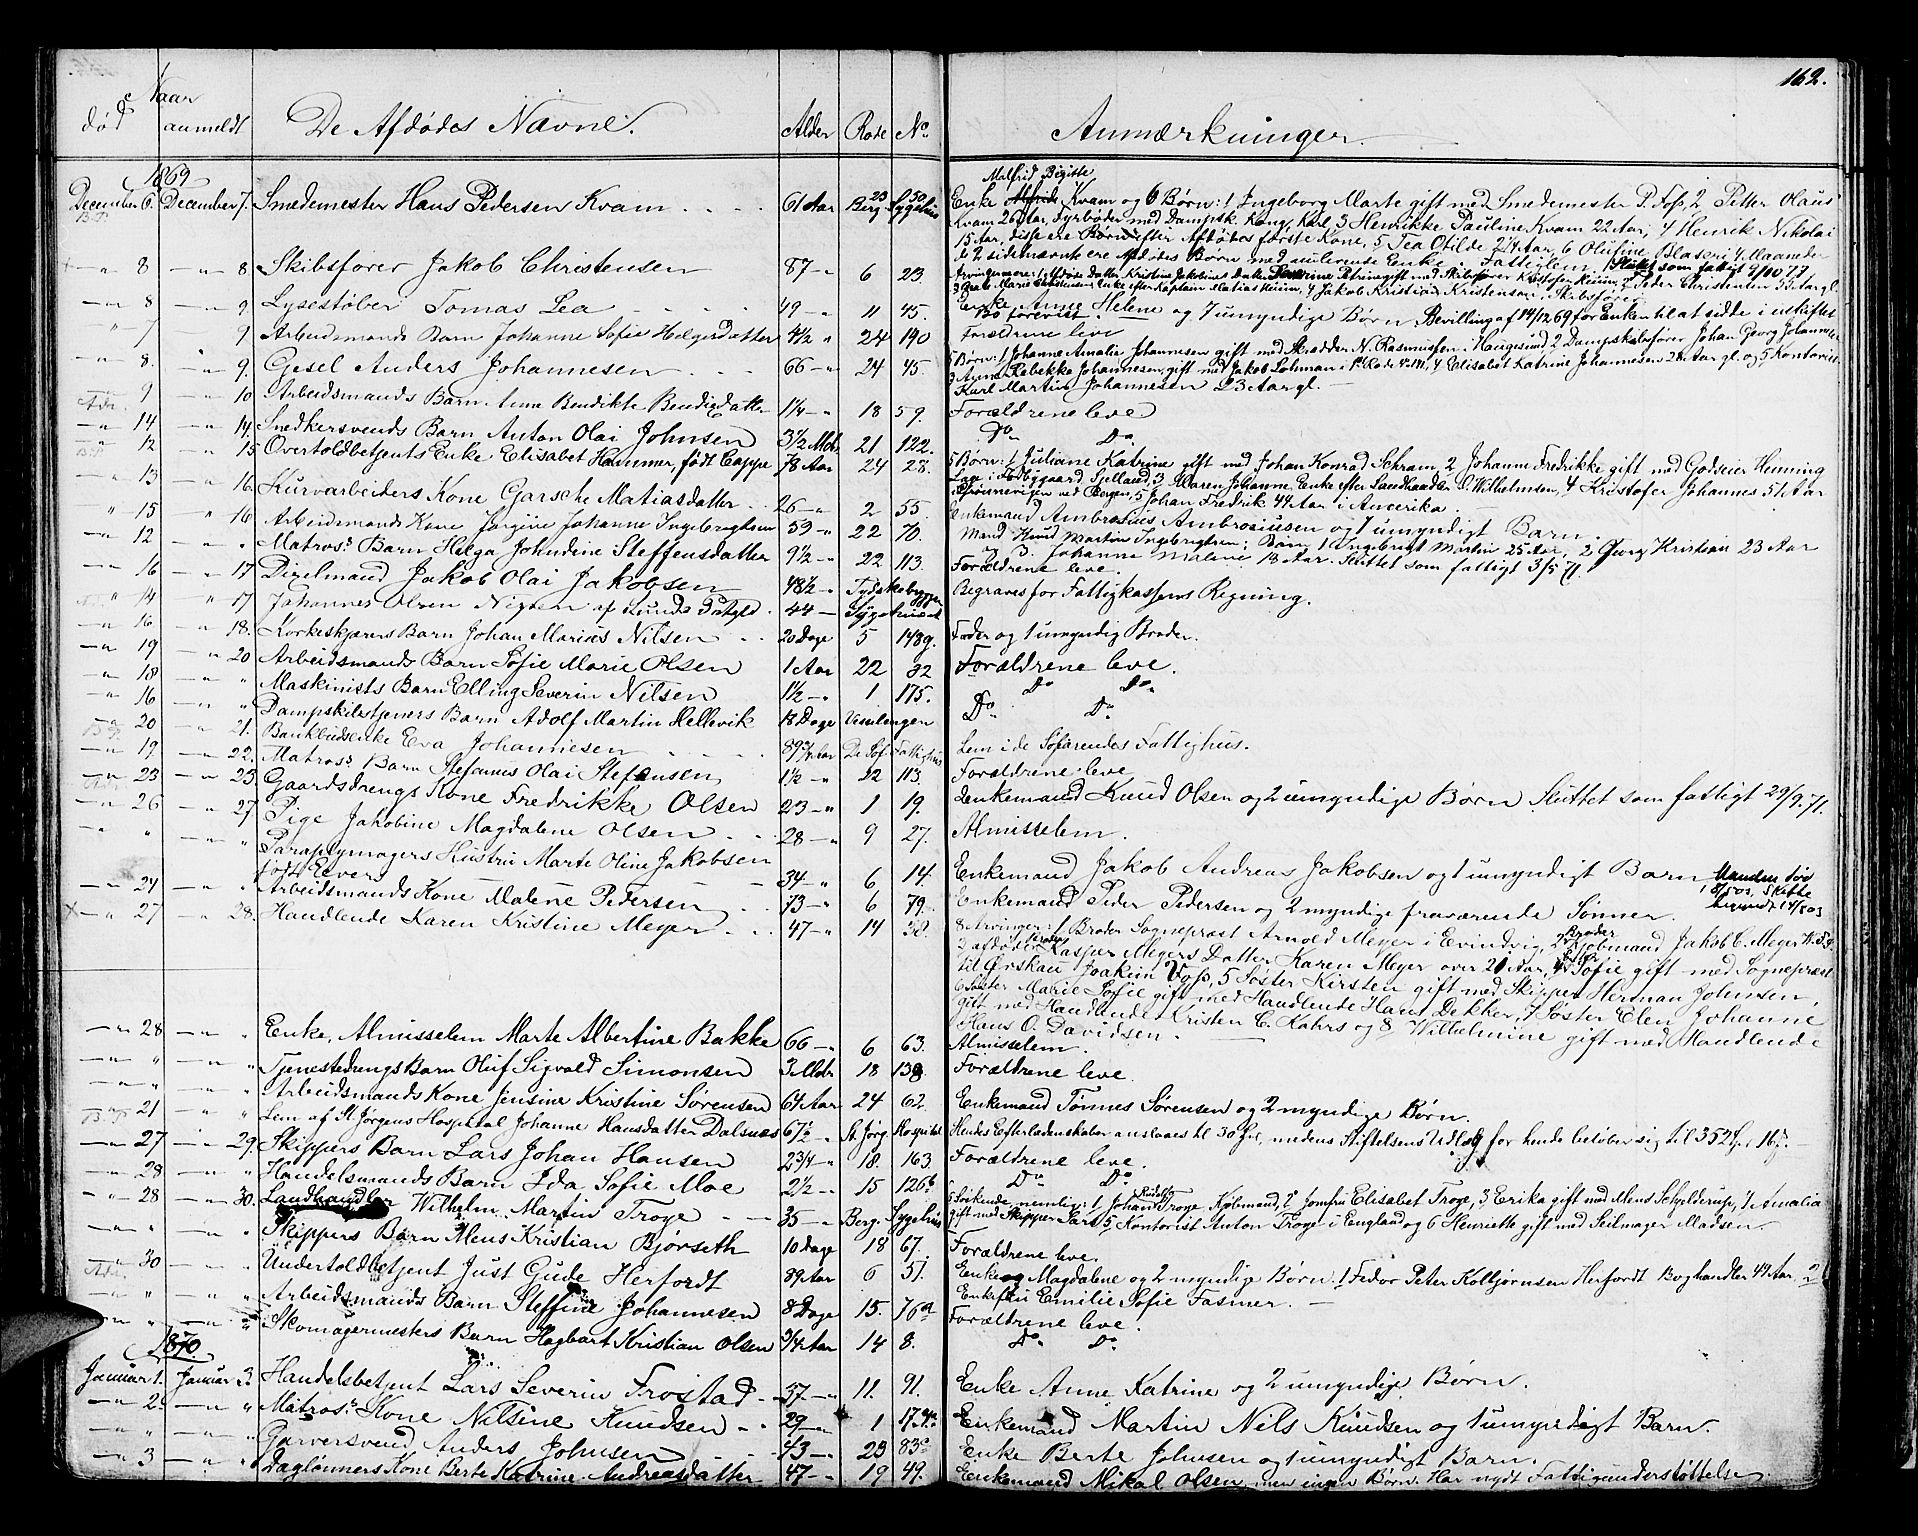 162.
Naar
død anmeldt De Afdødes Navne. Alder Rode No. Anmærkninger.
1869
Malfrid Birgitte
December 6. December 7. Smedemester Hans Pedersen Kvam 61 Aar Berg. Sygehus 23 50 Enke Kvam og 6 Børn: 1 Ingeborg Marte gift med Smedemester P. Foss, 2 Petter Olaus
Kvam 26 Aar, Fyrbøder med Dampsk. Kong Karl, 3 Henrikke Pauline Kvam 22 Aar, 4 Henrik Nikolai
15 Aar, disse ere Børn efter Afdødes første Kone, 5 Tea Otilde 2 1/4 Aar, 6 Olufine Blaseri 4 Maaneder
de 2 sidenævnte ere Afdødes Børn med nulevende Enke. Fattiglem. Sluttet som fattigt
" 8 " 8. Skibsfører Jakob Christensen 87 " 6 23.
" 8 " 9. Lysestøber Tomas Lea 49 " 11 45. Enke Anne Helene og 7 umyndige Børn. Bevilling af 14/12 69 for Enken til at sidde i uskiftet
Bo forevist.
" 7 " 9 Arbeidsmands Barn Johanne Sofie Helgesdatter 4 1/2 " 24 190 Forældrene leve
" 8. " 9. Gesel Anders Johannesen 66 " 24 45. 5 Børn: 1 Johanne Amalia Johannesen gift med Skrædder N. Rasmussen i Haugesund 2 Dampskibsfører Johan Georg Johannesen
3 Anne Rebekke Johannesen, gift med Jakob Lohman i 4 Elisabet Katrine Johannesen 28 Aar gl. og 5 Kontorist
Karl Martin Johannesen 23 Aar gl.
" 9 " 10 Arbeidsmands Barn Anna Bendikte Bendixdatter 1 1/4 " 18 59. Forældrene leve
" 14 " 14. Snedkersvends Barn Anton Olai Johnsen 3 1/2 Mdr. 21 122. Do. Do.
" 12 " 15 Overtoldbetjents Enke Elisabet Hammer, født Cappe 78 Aar 24 28. 5 Børn: 1 Juliane Katrine gift med Johan Konrad Schram, 2 Johanne Fredrikke gift med Godseier Henning
Sjelland, 3 Maren Johanne, Enke efter Landhandler O. Wilhelmsen, 4 Kristofer Johannes 51 Aar
ved Bergen, 5 Johan Fredrik 44 Aar i Amerika.
" 13 " 16. Kurvarbeiders Kone Garsche Matiasdatter 26 " 2 55. Enkemand Ambrosius Ambrosiusen og 1 umyndigt Barn.
" 15 " 16 Arbeidsmands Kone Jørgine Johanne Ingebrigtsen 59 " 22 70. Mand Knud Martin Ingebrigtsen; Børn 1 Ingebrigt Martin 25 Aar, 2 Georg Kristian 23 Aar
og 3. Johanne Malene 18 Aar. Sluttet som fattigt 3/5 71.
" 12 " " Matros's Barn Helga Johndine Steffensdatter 9 1/2 " 22 113. Forældrene leve.
" 16 " 17 Digelmand Jakob Olai Jakobsen 48 1/2 " Tydskebryggen Begraves for Fattigkassens Regning.
" 14 " 17 Johannes Olsen Nigten af Lunds Pstgld. 44 " Sygehuset
" 16 " 18. Korkeskjærers Barn Johan Marius Nilsen 20 Dage 5 148g. Fader og 1 umyndig Broder.
" 19 " 20 Arbeidsmands Barn Sofie Marie Olsen 1 Aar 22 32 Forældrene leve.
" 18 " " Maskinists Barn Elling Severin Nilsen 1 1/2 " 1 175. Do. Do.
" 16 " " Dampskibstjeners Barn Adolf Martin Hellevik 18 Dage Do. Do.
" 20 " 21. Bankbudsenke Eva Johannesen 89 Aar De Søf. Fattighus Lem i de Søfarendes Fattighus.
" 19 " 22. Matros's Barn Stefanus Olai Stefansen 1 1/2 " 22 113. Forældrene leve
" 23 " 23. Gaardsdrengs Kone Fredrikke Olsen 23 " 1 19. Enkemand Knud Olsen og 2 umyndige Børn Sluttet som fattigt 29/9. 71.
" 26 " 27. Pige Jakobine Magdalene Olsen 28 " 9 27. Almisselem.
" " " " Paraplymagers Hustru Marte Oline Jakobsen
født Evers 34 " 6 14. Enkemand Jakob Andreas Jakobsen og 1 umyndigt Barn Manden død
" 24 " " Arbeidsmands Kone Malene Pedersen 73 " 6 79. Enkemand Peder Pedersen og 2 myndige fraværende Sønner.
" 27 " 28. Handlende Karen Kristine Meyer 47 " 14 38. 8 Arvinger: 1 Broder Sognepræst Arnold Meyer i Evindvig, 2 Broder Kjøbmand Jakob C. Meyer
3 afdøde Broder Kaspar Meyers Datter Karen Meyer over 21 Aar, 4 Søster Sofie gift med Sogneprest
til Ørskau Joakim Voss, 5 Søster Kirsten gift med Skipper Herman Johnsen,
6 Søster Marie Sofie gift med Handlende Hans Dekker, 7 Søster Elen Johanne
gift med Handlende Kristen C. Kahrs og 8 Wilhelmine gift med Handlende
Hans O. Davidsen.
" 28 " " Enke, Almisselem Marte Albertine Bakke 66 " 6 63. Almisselem.
" " " " Tjenestedrengs Barn Oluf Sigvald Simonsen 3 Mdr 18 138. Forældrene leve.
" " " " Arbeidsmands Kone Jensine Kristine Sørensen 64 Aar 24 62. Enkemand Tønnes Sørensen og 2 myndige Børn.
" 21 " " Lem af St. Jørgens Hospital Johanne Hansdatter Dalsnæs 67 1/2 " St. Jørg. Hospital Hendes Efterladenskaber anslaaes til 30 medens Stiftelsens Udlæg for hende beløber sig til 352
" 27 " 29. Skippers Barn Lars Johan Hansen 2 3/4 " 18. 163. Forældrene leve.
" 28 " " Handelsmands Barn Ida Sofie Moe 2 1/2 " 15 126b Do. Do.
" 28 " 30. Landhandler Wilhelm Martin Troye 35 " Berg. Sygehus 5 Søskende, nemlig: 1 Johan Rudolf Troye, Kjøbmand, 2 Jomfru Elisabet Troye, 3 Erika gift med Mens Schjelderup, 4 Amalia
gift med Skipper 5 Kontorist Anton Troye i England og 6 Henriette gift med Seilmager Madsen.
" " " " Skippers Barn Mens Kristian Bjørseth 10 Dage 18 67. Forældrene leve.
" 30 " " Undertoldbetjent Just Gude Herfordt 89 Aar 6 51. Enke Magdalene og 2 myndige Børn: 1 Fedor Peter Kolbjørnsen Herfordt Boghandler 44 Aar 2
Emilie Sofie Fasmer.
" " " " Arbeidsmands Barn Steffine Johannesen 8 Dage 15. 76a Forældrene leve.
" " " " Skomagermesters Barn Hagbart Kristian Olsen 3/4 Aar 14 8. Do. Do.
1870
Januar 1. Januar 3. Handelsbetjent Lars Severin Frostad 57 " 11. 91. Enke Anne Katrine og 2 umyndige Børn.
" 2. " " Matros's Kone Nilsine Knudsen 29 " 1 Enkemand Martin Nils Knudsen og 1 umyndigt Barn.
" " " " Garversvend Anders Johnsen 43 " 23 83c Enke Berte Johnsen og 1 umyndigt Barn.
" 3 " " Daglønners Kone Berte Katrine Andreasdatter 47 " 19 49. Enkemand Mikal Olsen, men ingen Børn. Har nydt Fattigunderstøttelse.